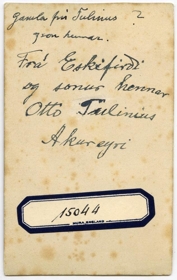 Gamla frú Tulinius ?
Frá Eskifirði
og sonur hennar
Otto Tulinius
Akureyri
15044